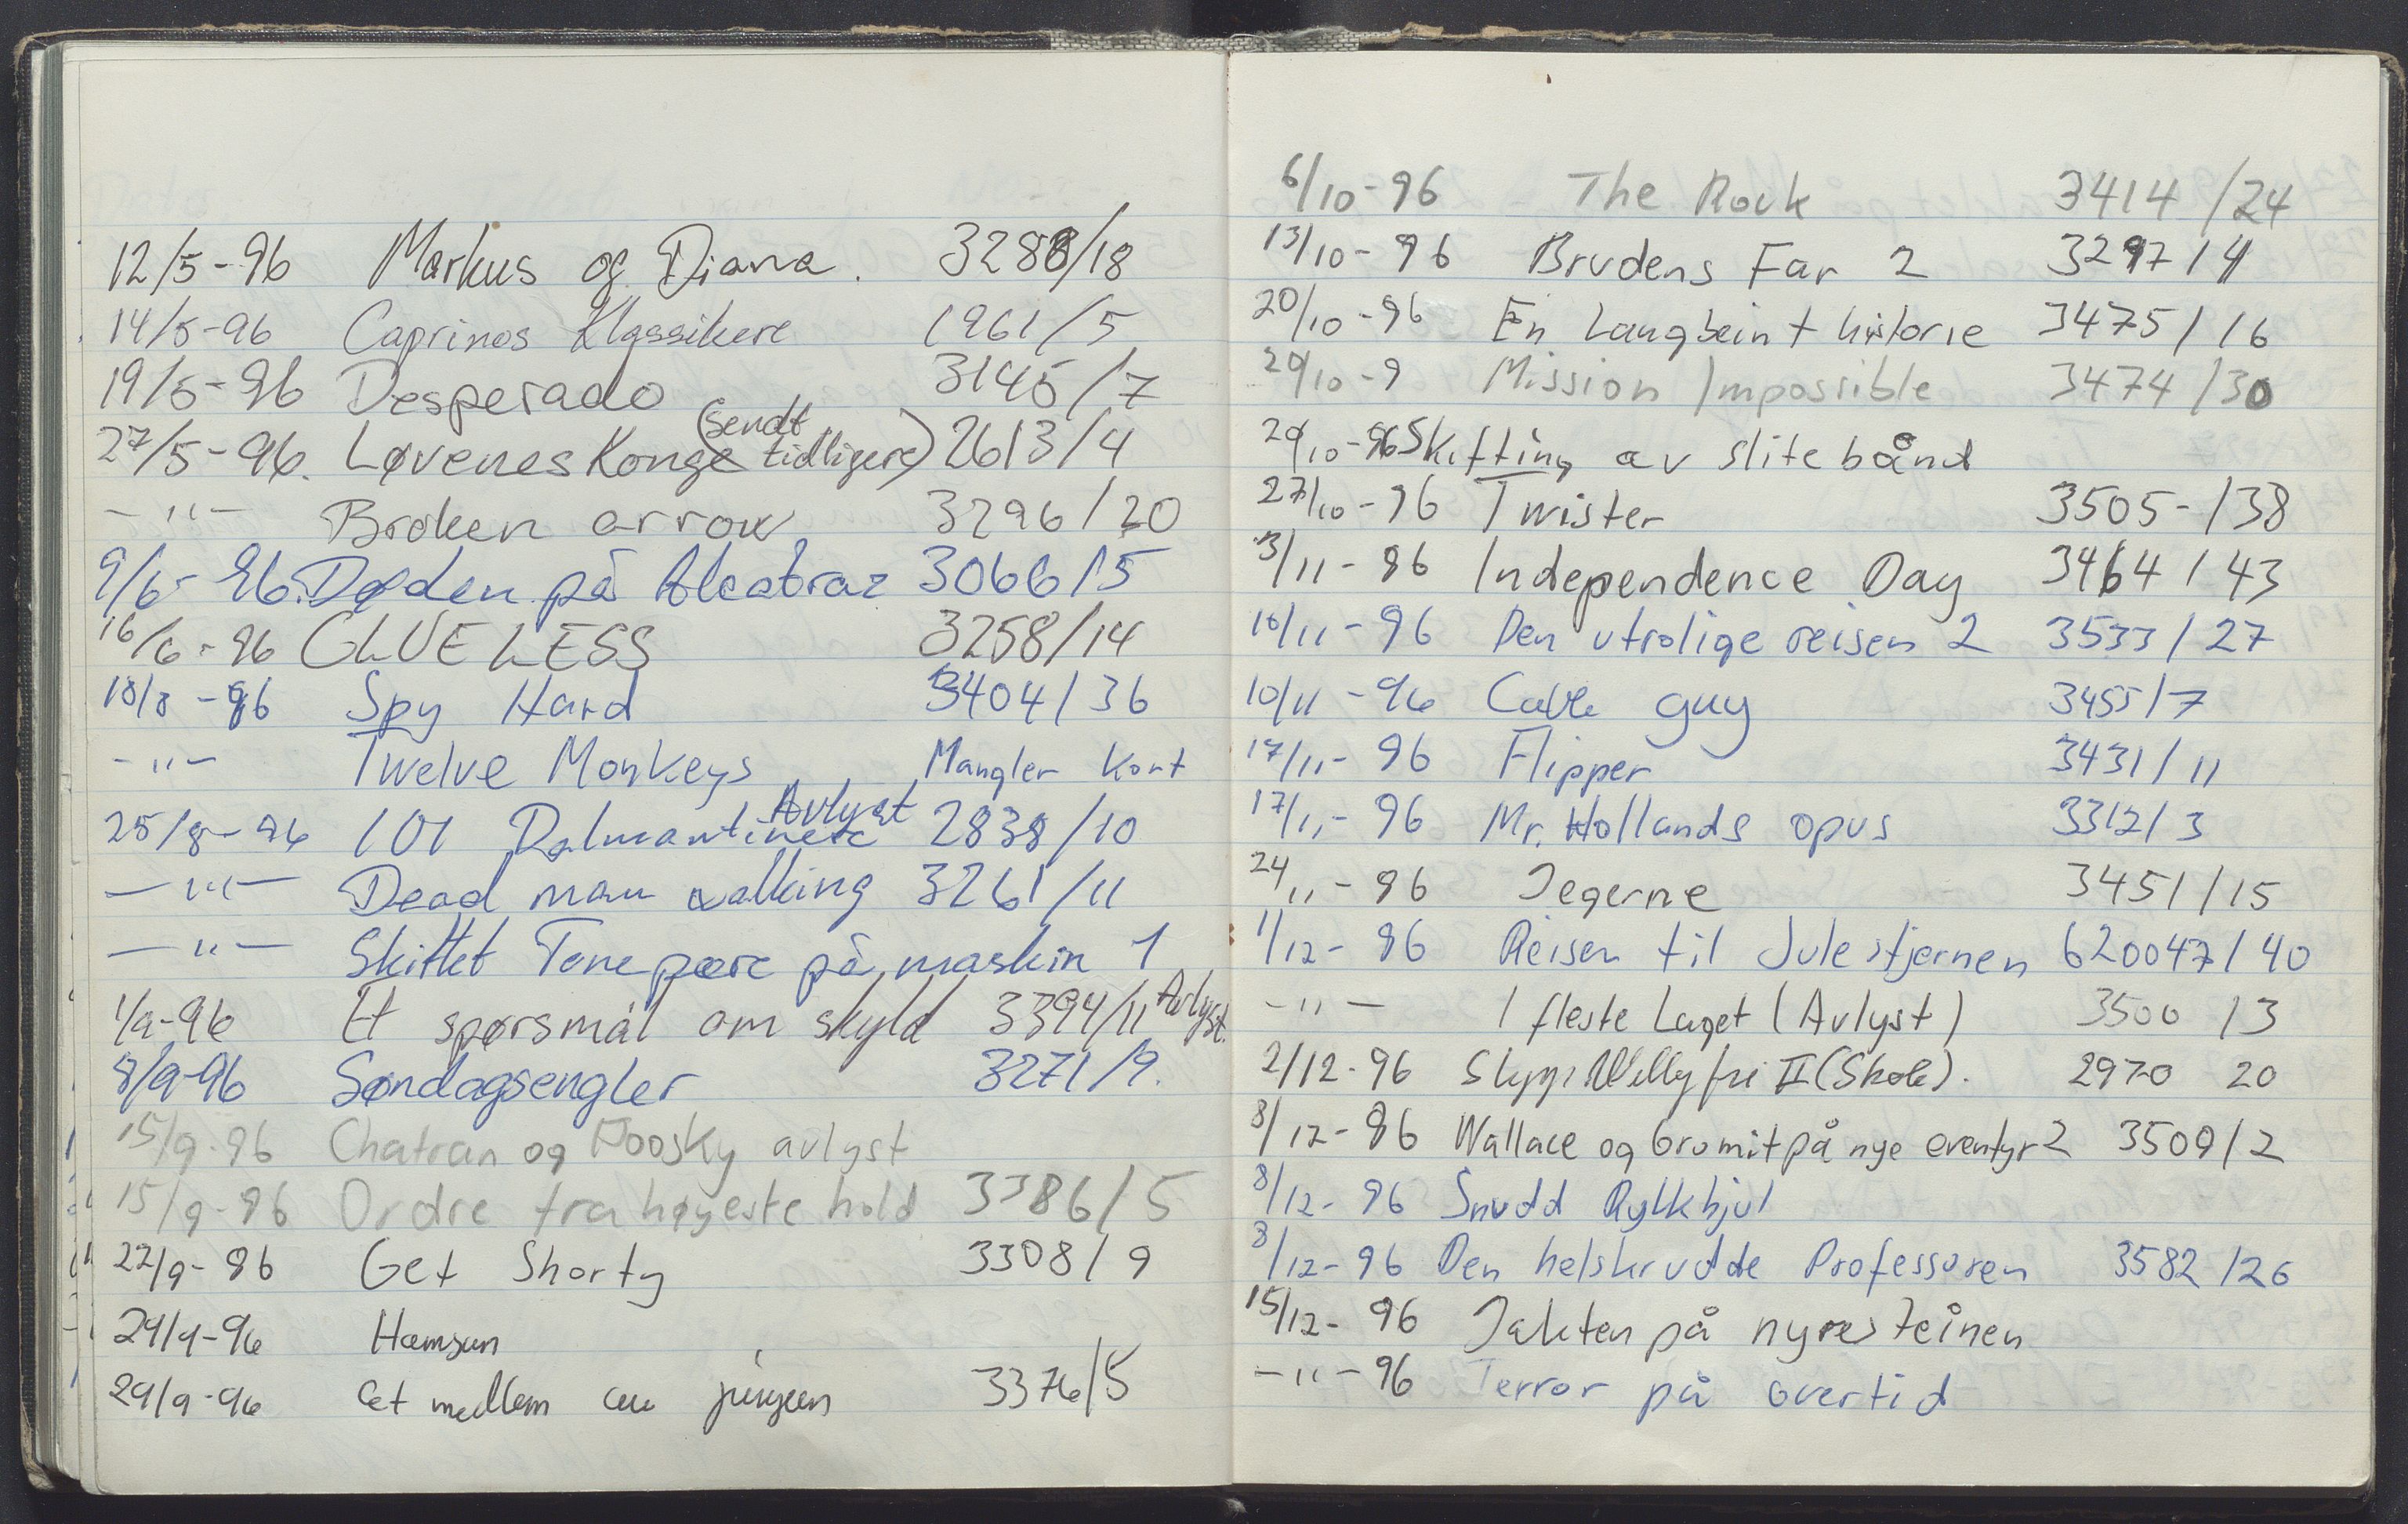 12/5-96 Markus og Diana. 3288/18
14/5-96 Caprinos Klassikere 1961/5
19/5-96 Desperado 3145/7
27/5-96. Løvenes Konge (sendt tidligere) 2613/4
-"- Broken arrow 3296/20
9/6-96. Døden på Alcatraz 3066/5
16/6-96 CLUELESS 3258/14
18/8-96 Spy Hard 3404/36
-"- Twelve Monkeys Mangler Kort
25/8-96 101 Dalmantinere Avlyst 2838/10
-"- Dead man walking 3261/11
-"- Skiftet Tonepære på maskin 1
1/9-96 Et spørsmål om skyld 3394/11 Avlyst.
8/9-96 Søndagsengler 3271/9.
15/9-96 Chatran og Poosky avlyst
15/9-96 Ordre fra høyeste hold 3386/5
22/9-96 Get Shorty 3308/9
29/9-96 Hamsun
29/9-96 Et medlem av juryen 3376/5
6/10-96 The Rock 3414/24
13/10-96 Brudens Far 2 3297/4
20/10-96 En Langbeint historie 3475/16
20/10-9 Mission Impossible 3474/30
20/10-96 Skifting av slitebånd
27/10-96 Twister 3505-/38
3/11-96 Independence Day 3464/43
10/11-96 Den utrolige reisen 2 3533/27
10/11-96 Cable guy 3455/7
17/11-96 Flipper 3431/11
17/11-96 Mr. Hollands opus 3312/3
24/11-96 Jegerne 3451/15
1/12-96 Reisen til Julestjernen 620047/40
-"- I fleste Laget (Avlyst) 3500/3
2/12-96 Slipp Willy fri II (Skole). 2970 20
8/12-96 Wallace og Gromit på nye eventyr 2 3509/2
8/12-96 Snudd Rylkhjul
8/12-96 Den helskrudde Professoren 3582/26
15/12-96 Jakten på nyresteinen
-"-96 Terror på overtid